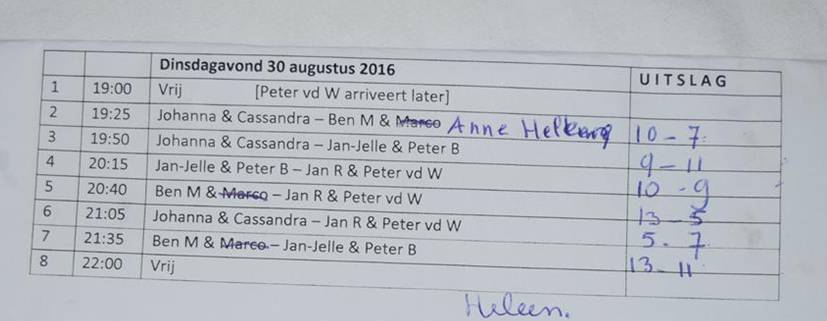 Dinsdagavond 30 augustus 2016 UITSLAG
1 19:00 Vrij [Peter vd W arriveert later]
2 19:25 Johanna & Cassandra – Ben M & Marco Anne 10 – 7
3 19:50 Johanna & Cassandra – Jan-Jelle & Peter B 9 – 11
4 20:15 Jan-Jelle & Peter B – Jan R & Peter vd W 10 - 9
5 20:40 Ben M & Marco – Jan R & Peter vd W 13 – 5
6 21:05 Johanna & Cassandra – Jan R & Peter vd W 5 - 7
7 21:35 Ben M & Marco – Jan-Jelle & Peter B 13 - 11
8 22:00 Vrij
Heleen.